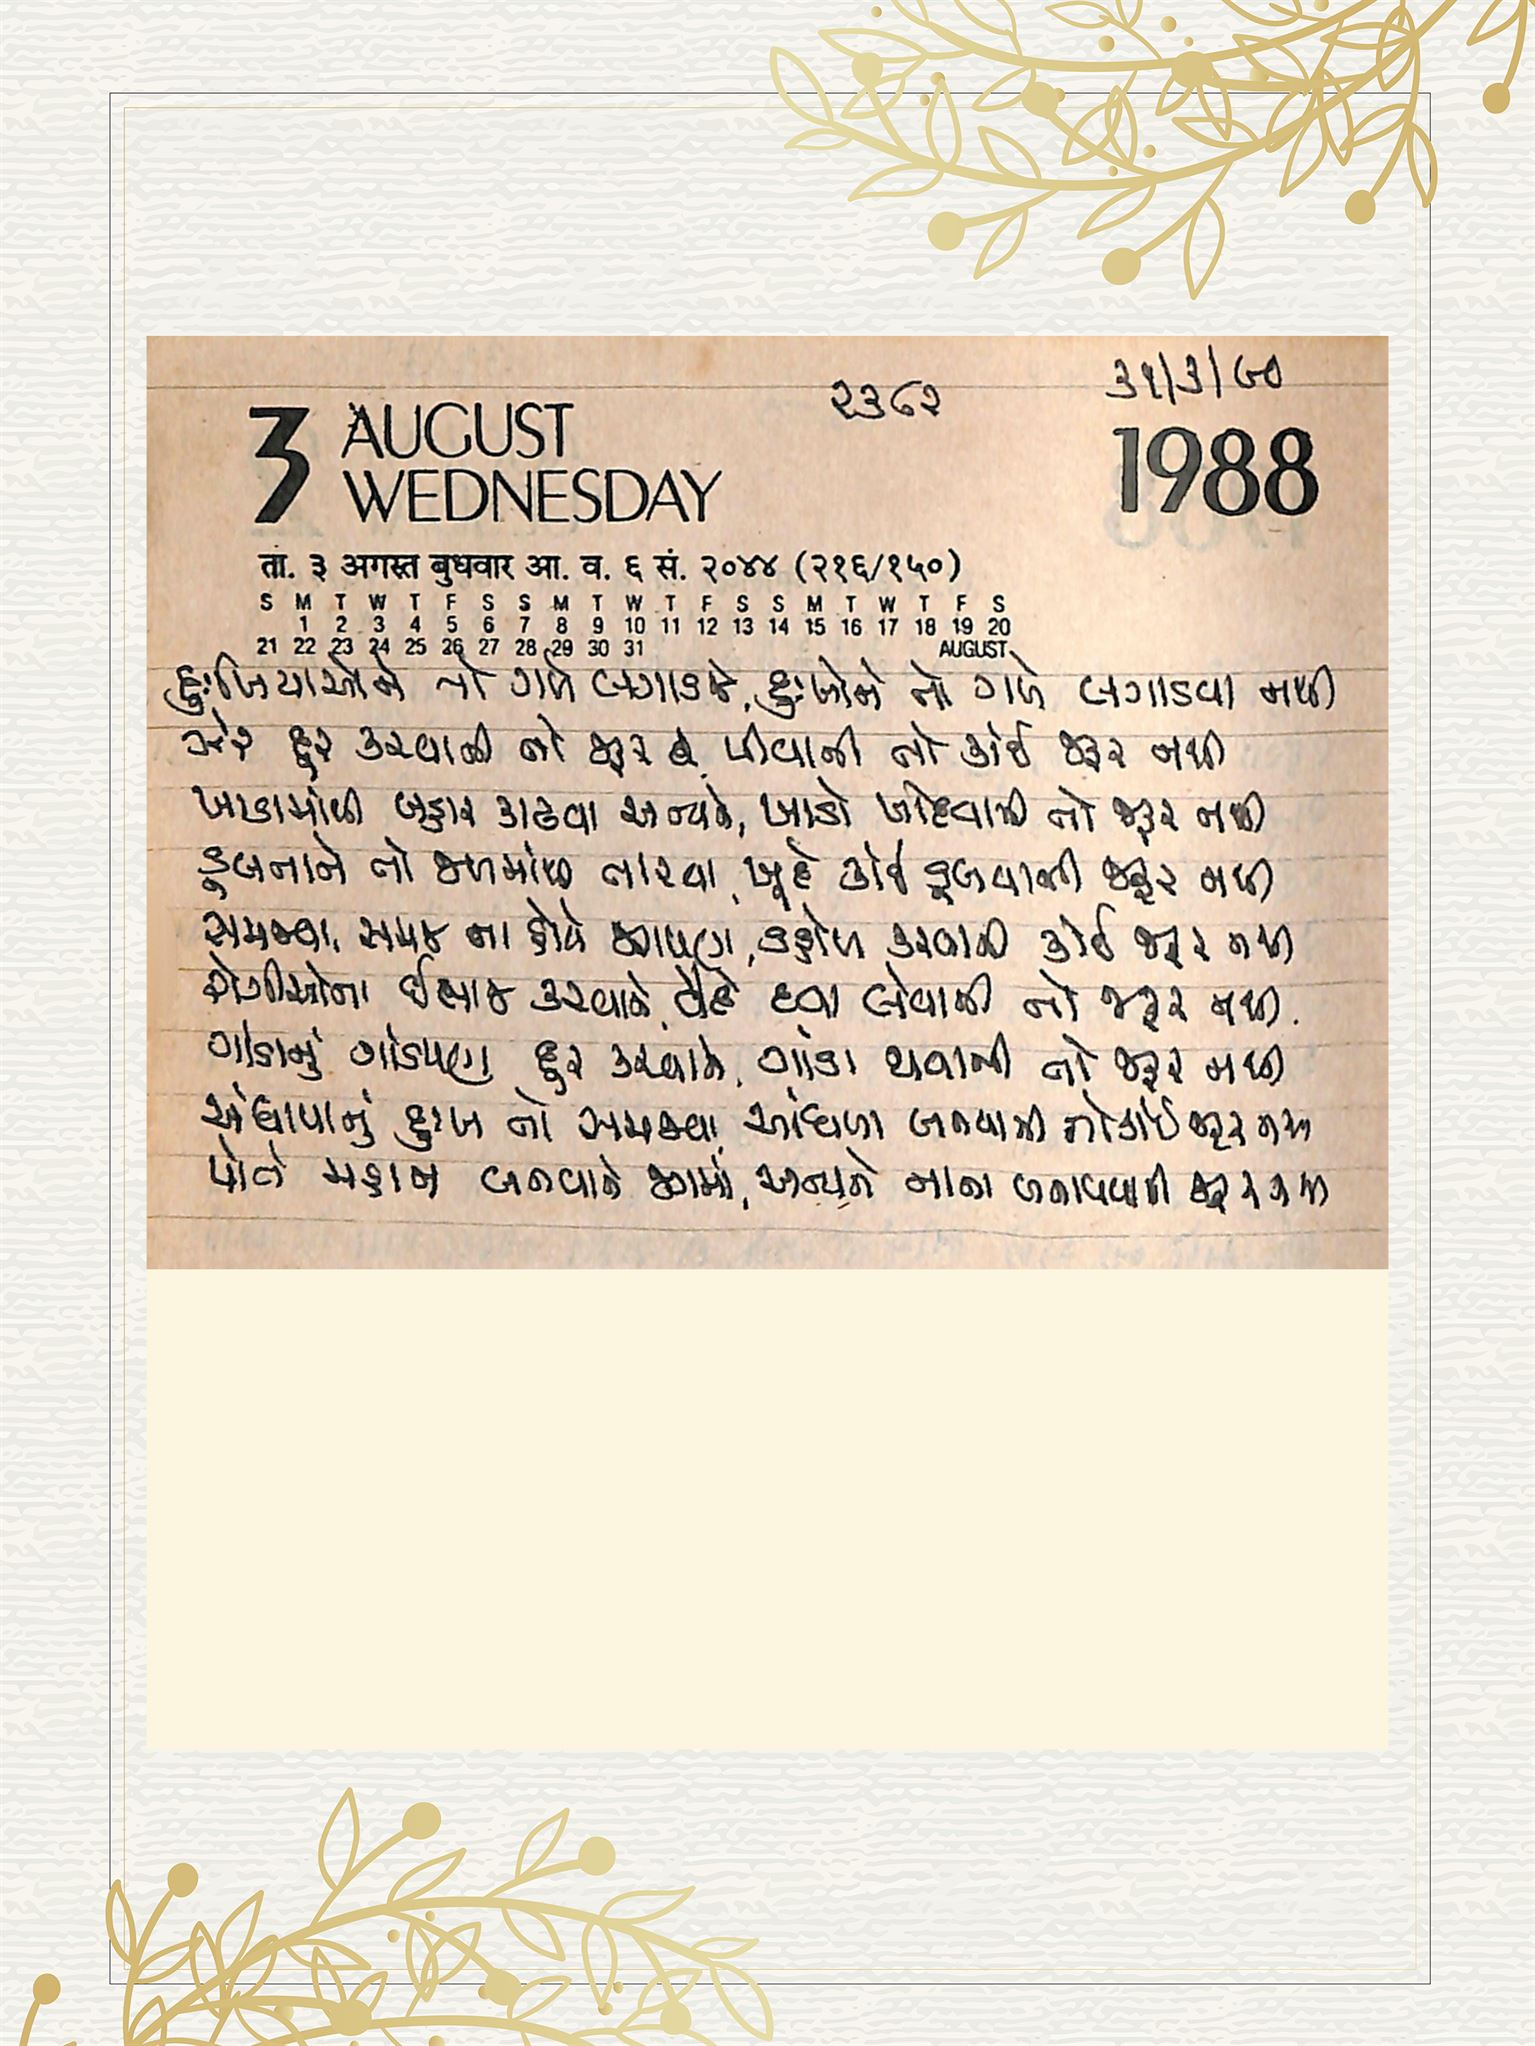 ૨૩૯૨
૩૧/૩/૯૦
3 AUGUST
WEDNESDAY
1988
ता. ३ अगस्त बुधवार आ. व. ६ सं. २०४४ (२१६/१५०)
S M T W T F S S M T W T F S S M T W T F S
1 2 3 4 5 6 7 8 9 10 11 12 13 14 15 16 17 18 19 20
21 22 23 24 25 26 27 28 29 30 31 AUGUST
દુઃખિયાઓને તો ગળે લગાડજે, દુઃખોને તો ગળે લગાડવા નથી
ઝેર દૂર કરવાની તો જરૂર છે, પીવાની તો કોઈ જરૂર નથી
ખાડામાંથી બહાર કાઢવા અન્યને, ખાડો ખોદવાની તો જરૂર નથી
ડૂબનાને તો જળમાંથી તારવા, ખુદે કોઈ ડૂબવાની જરૂર નથી
સમજવા, સમજ ના હોયે આપણા, કહોળ કરવાની કોઈ જરૂર નથી
રોગીઓના ઈલાજ કરવાને, વૈદે દવા લેવાની તો જરૂર નથી.
ગાંડાનું ગાંડપણ દૂર કરવાને, ગાંડા થવાની તો જરૂર નથી
અંધાપાનું દુઃખ તો સમજવા, આંધળા બનવાની તો કોઈ જરૂર નથી
પોતે મહાન બનવાને જગમાં, અન્યને નાના બનાવવાની જરૂર નથી